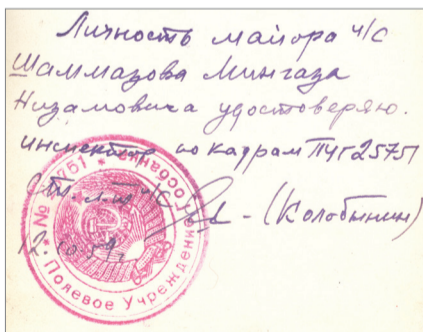 Личность майора ч/с
Шаммазова Мингаза
Низамовича удостоверяю.
инспектор по кадрам ПУГ 2575
ст. л-т ч/с - (Колобынин)
12.10.59г.
Полевое Учреждение Госбанка